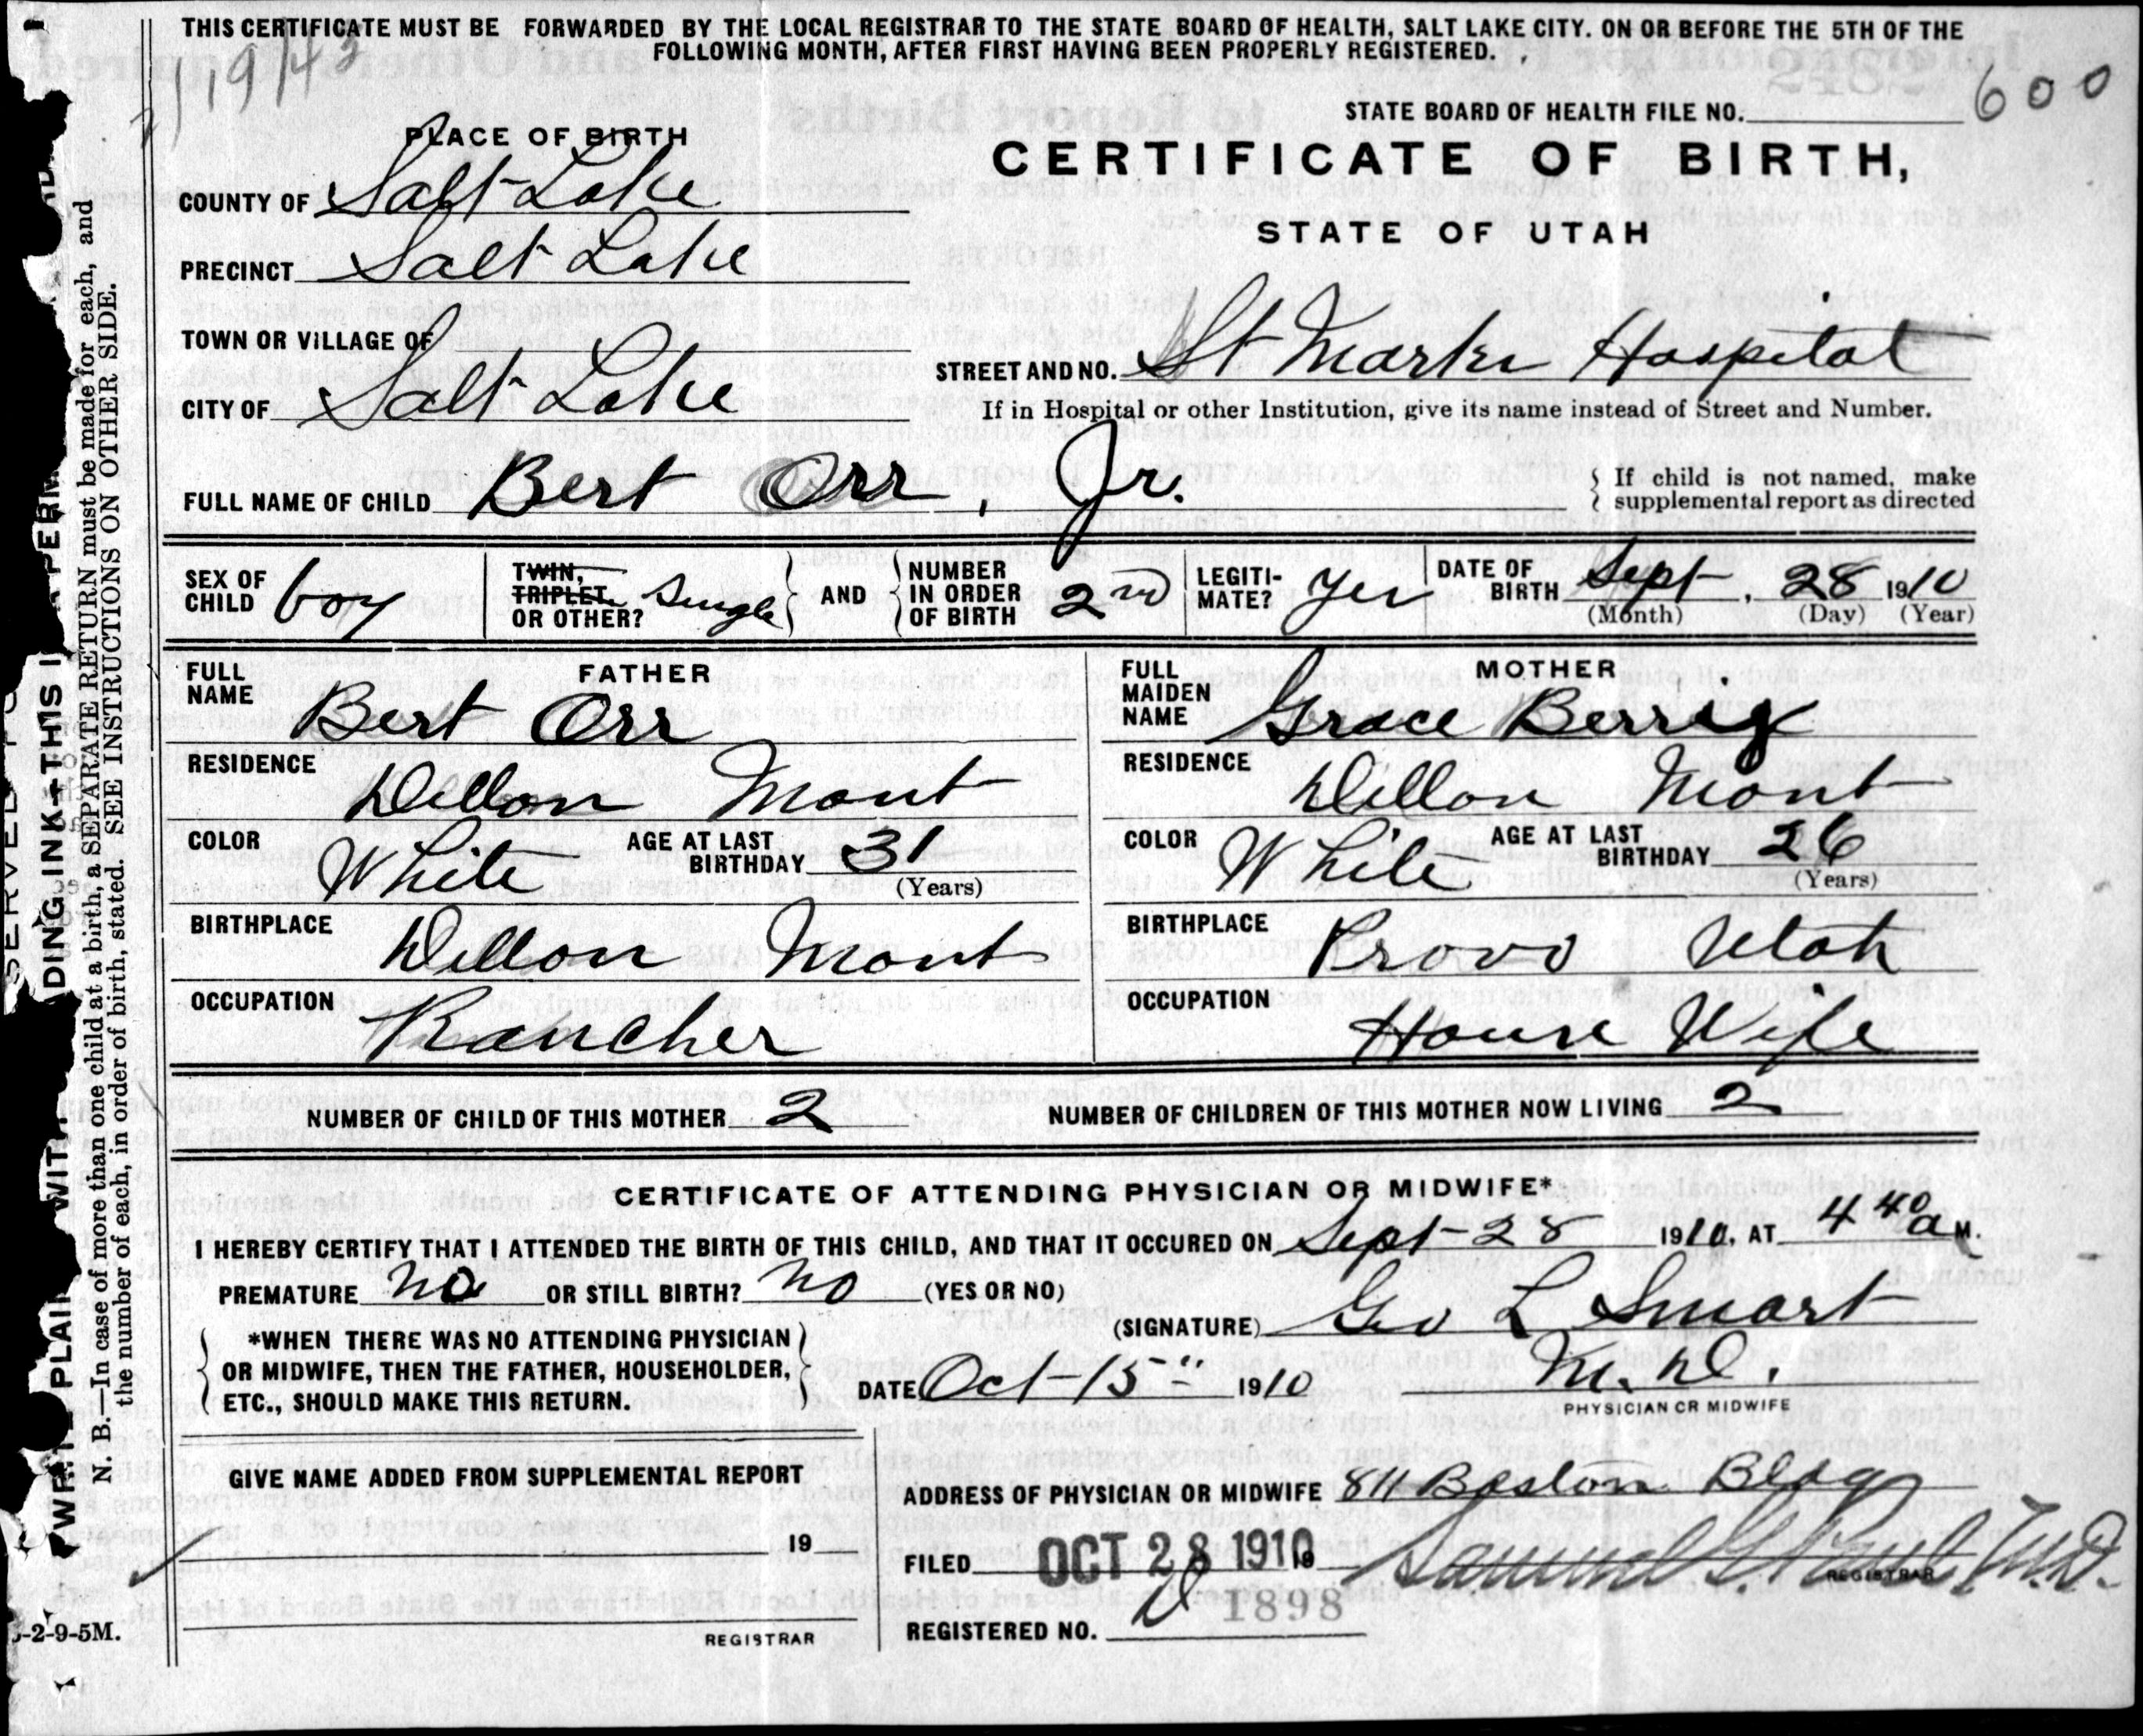 THIS CERTIFICATE MUST BE FORWARDED BY THE LOCAL REGISTRAR TO THE STATE BOARD OF HEALTH, SALT LAKE CITY. ON OR BEFORE THE 5TH OF THE
FOLLOWING MONTH, AFTER FIRST HAVING BEEN PROPERLY REGISTERED.
600
STATE BOARD OF HEALTH FILE NO.
PLACE OF BIRTH
CERTIFICATE OF BIRTH,
STATE OF UTAH
COUNTY OF Salt Lake
PRECINCT Salt Lake
TOWN OR VILLAGE OF
STREET AND NO. St Marks Hospital
CITY OF Salt Lake
If in Hospital or other Institution, give its name instead of Street and Number.
FULL NAME OF CHILD Bert Orr, Jr.
If child is not named, make
supplemental report as directed
SEX OF CHILD boy
TWIN, TRIPLET, OR OTHER? Single
AND NUMBER IN ORDER OF BIRTH 2nd
LEGITIMATE? Yes
DATE OF BIRTH Sept, 28 1910
(Month) (Day) (Year)
FATHER
FULL NAME Bert Orr
RESIDENCE Dillon Mont
COLOR White AGE AT LAST BIRTHDAY 31
(Years)
BIRTHPLACE Dillon Mont
OCCUPATION Rancher
MOTHER
FULL MAIDEN NAME Grace
RESIDENCE Dillon Mont
COLOR White AGE AT LAST BIRTHDAY 26
(Years)
BIRTHPLACE Provo Utah
OCCUPATION House Wife
NUMBER OF CHILD OF THIS MOTHER 2 NUMBER OF CHILDREN OF THIS MOTHER NOW LIVING 2
CERTIFICATE OF ATTENDING PHYSICIAN OR MIDWIFE*
I HEREBY CERTIFY THAT I ATTENDED THE BIRTH OF THIS CHILD, AND THAT IT OCCURED ON Sept 28 1910, AT 4 40 a M.
PREMATURE no OR STILL BIRTH? no (YES OR NO)
*WHEN THERE WAS NO ATTENDING PHYSICIAN
OR MIDWIFE, THEN THE FATHER, HOUSEHOLDER,
ETC., SHOULD MAKE THIS RETURN.
(SIGNATURE) Geo L Smart
M.D.
DATE Oct 15" 1910
PHYSICIAN OR MIDWIFE
GIVE NAME ADDED FROM SUPPLEMENTAL REPORT
19
REGISTRAR
ADDRESS OF PHYSICIAN OR MIDWIFE 811 Boston Bldg
FILED OCT 28 1910 19 Samuel G. Paul, M.D.
REGISTRAR
REGISTERED NO. 1898
N. B.—In case of more than one child at a birth, a SEPARATE RETURN must be made for each, and
the number of each, in order of birth, stated. SEE INSTRUCTIONS ON OTHER SIDE.
-2-9-5M.